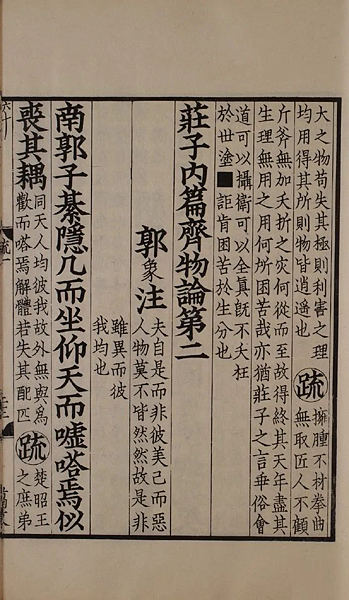 大之物苟失其極則利害之理
均用得其所則物皆逍遙也
疏
擁腫不材拳曲
無取匠人不顧
斤斧無加夭折之灾何從而至故得終其天年盡其
生理無用之用何所困苦哉亦猶莊子之言乖俗會
道可以攝衛可以全真旣不夭枉
於世塗■詎肯困苦於生分也
莊子內篇齊物論第二
郭象注
夫自是而非彼美己而惡
人物莫不皆然然故是非
雖異而彼
我均也
南郭子綦隱几而坐仰天而噓嗒焉似
喪其耦
同天人均彼我故外無與爲
歡而嗒焉解體若失其配匹
疏
楚昭王
之庶弟